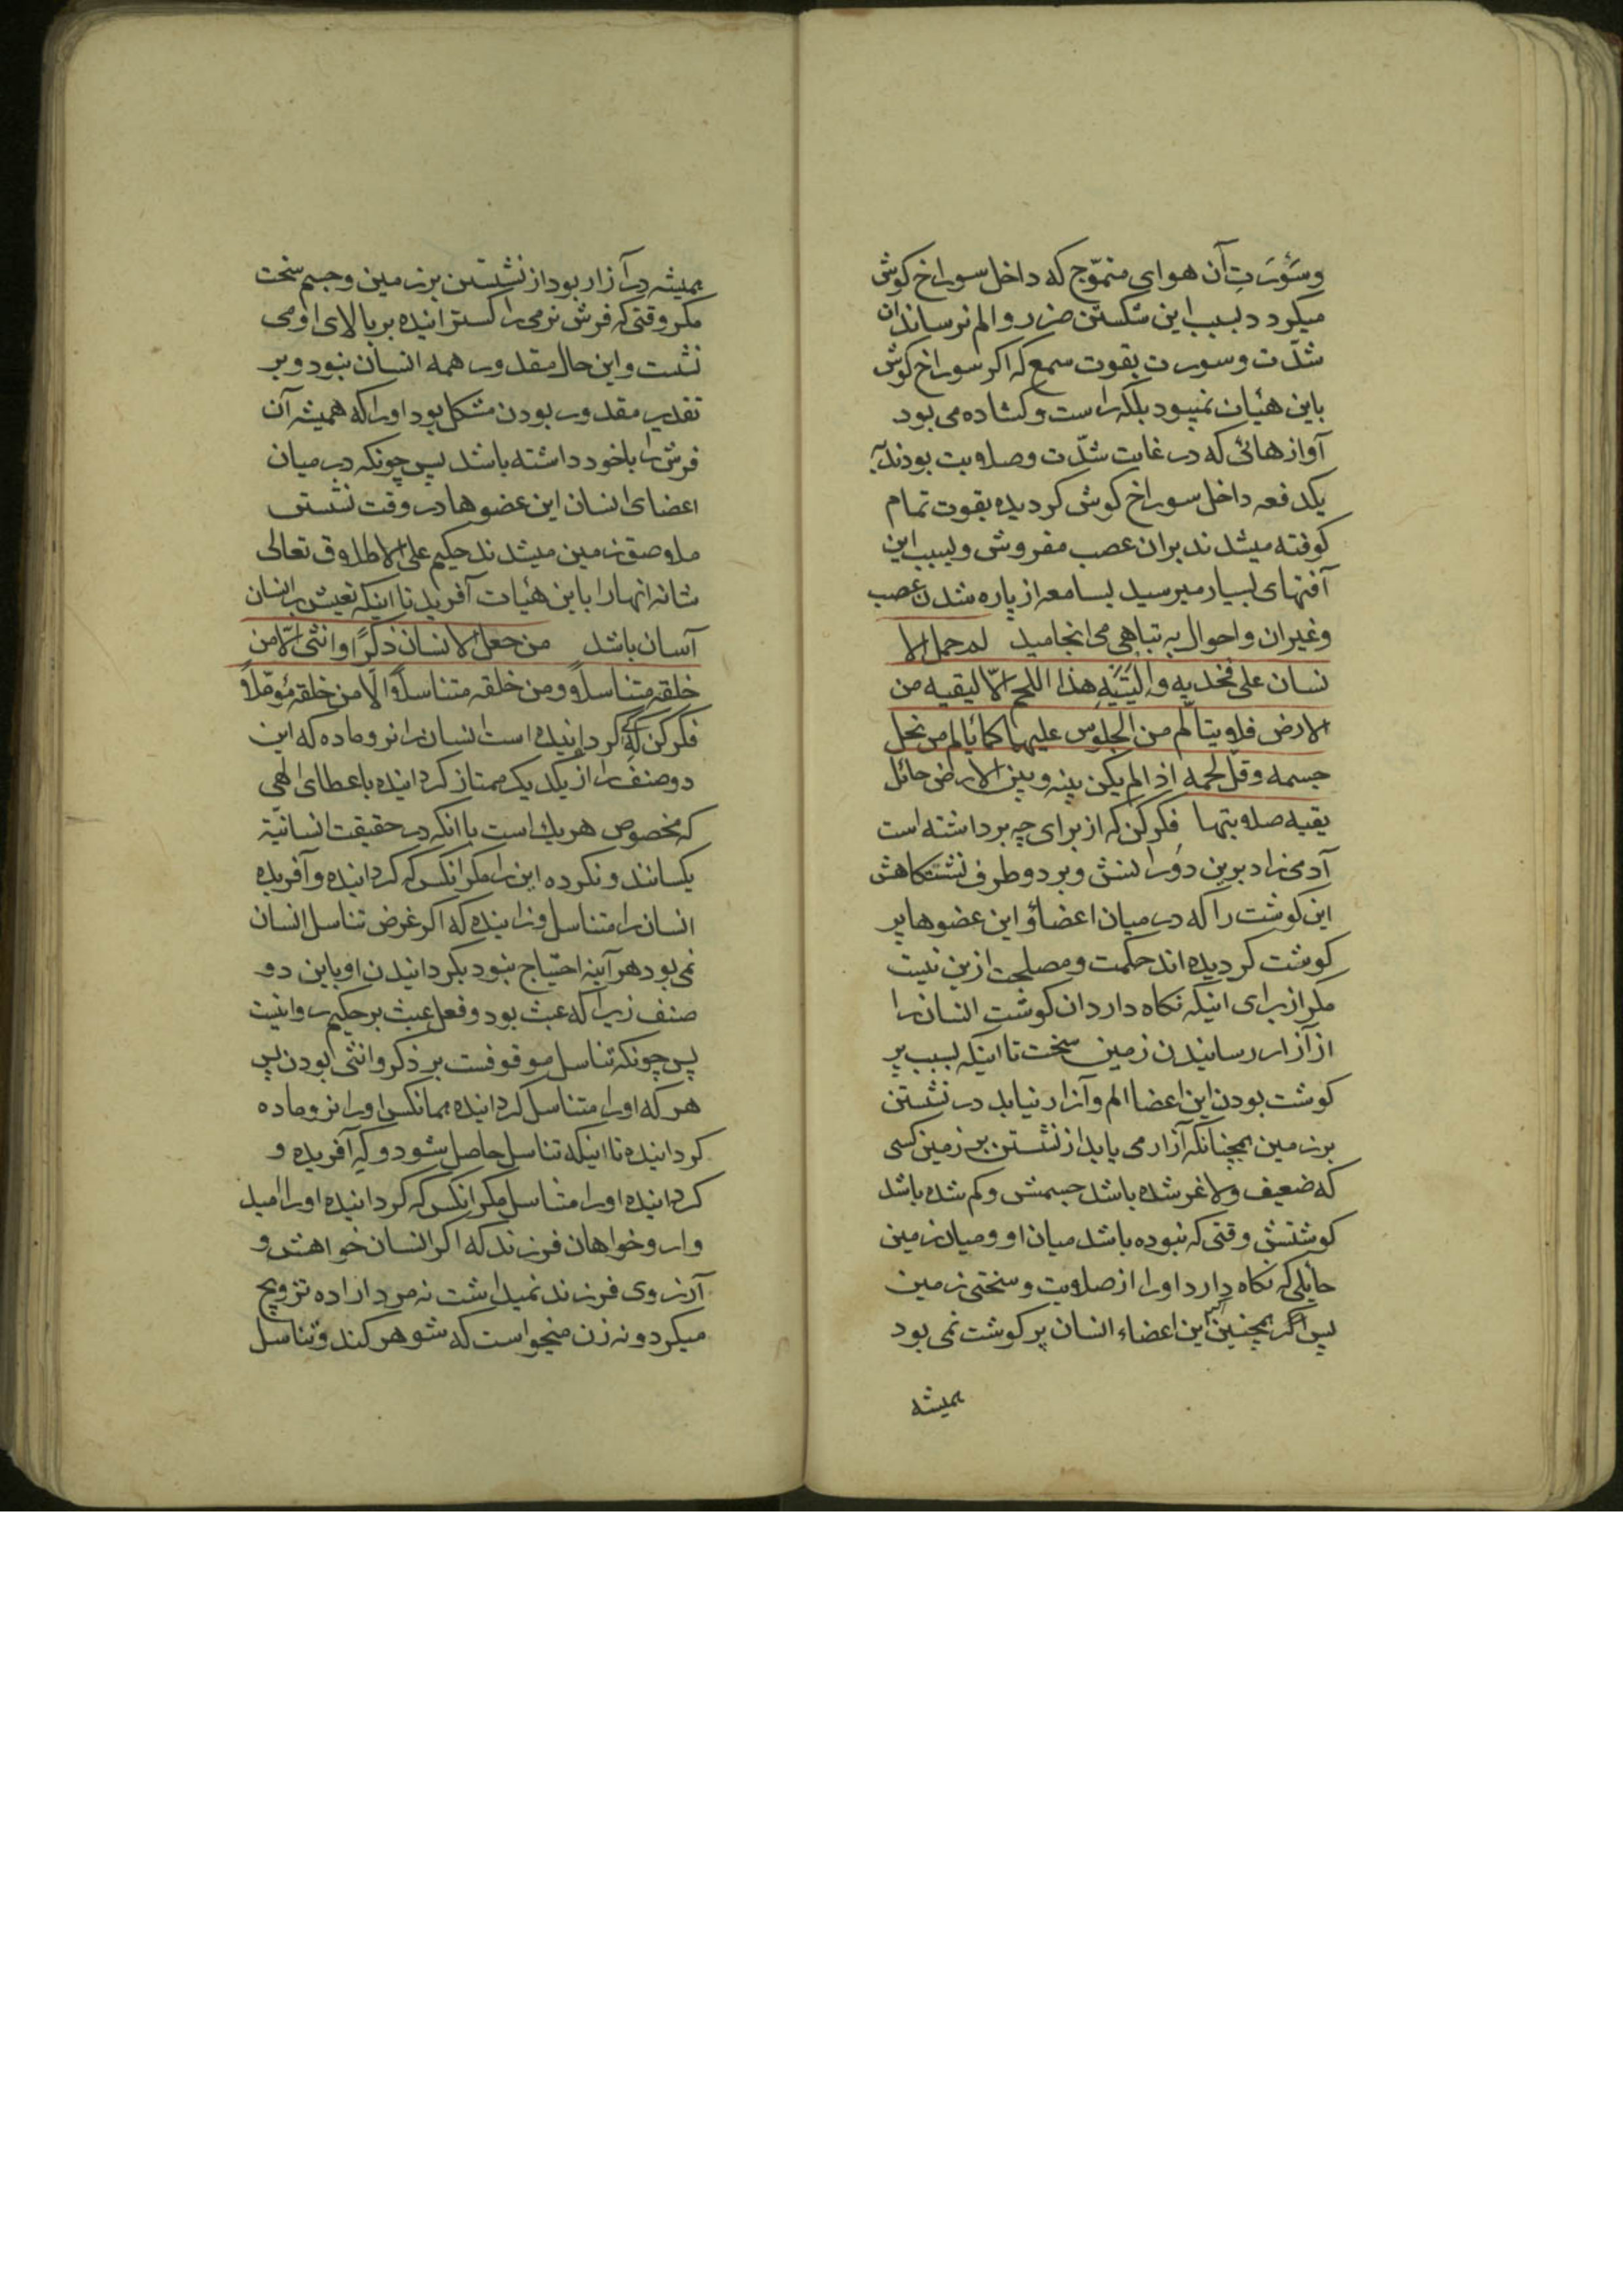 وسَوْرَتِ آن هوای متموّج که داخل سوراخ کوش
میکردد بسبب این شکستن ضرر و الم نرساند آن
شدّت و سورت بقوت سمع که اکر سوراخ کوش
باین هیأت نمیبود بلکه راست و کشاده می بود
آوازهائی که در غایت شدّت و صلابت بودند به
یکدفعه داخل سوراخ کوش کردیده بقوت تمام
کوفته میشدند بران عصب مفروش و بسبب این
آفتهای بسیار میرسید بسامعه از پاره شدن عصب
و غیر ان و احوال به تباهی می انجامید لم حمل الا
نسان علی فخذیه و الیَتَیْهِ هذا اللحم الّا لیقیه من
الارض فلا یتالّم من الجلوس علیها کما یالم من نحل
جسمه و قلّ لحمه اذا لم یکن بینه و بین الارض حائل
یقیه صلابتها فکر کن که از برای چه برداشته است
آدمی زاد برین دو رانش و بر دو طرف نشستکاهش
این کوشت را که در میان اعضاؤ این عضوها پر
کوشت کردیده اند حکمت و مصلحت ازین نیست
مکر از برای اینکه نکاه دارد ان کوشت انسان را
از آزار رسانیدن زمین سخت تا اینکه بسبب پر
کوشت بودن این اعضا الم و آزار نیابد در نشستن
بر زمین همچنانکه آزار می یابد از نشستن بر زمین کسی
که ضعیف و لاغر شده باشد جسمش و کم شده باشد
کوشتش وقتی که نبوده باشد میان او و میان زمین
حایلی که نکاه دارد او را از صلابت و سختی زمین
پس اکر همچنین این اعضاء انسان پر کوشت نمی بود
همیشه
همیشه در آزار بود از نشستن بر زمین و جسم سخت
مکر وقتی که فرش نرمی را کسترانیده بر بالای او می
نشست و این حال مقدور همه انسان نبود و بر
تقدیر مقدور بودن مشکل بود او را که همیشه آن
فرش را با خود داشته باشد پس چونکه در میان
اعضای انسان این عضوها در وقت نشستن
ملاصق زمین میشدند حکیم علی الاطلاق تعالی
شانه انها را باین هیأت آفرید تا اینکه تعیش بر انسان
آسان باشد من جعل الانسان ذکرًا و انثی الّا من
خلقه متناسلًا و من خلقه متناسلًا الّا من خلقه مؤمّلًا
فکر کن که کردانیده است انسان را نر و ماده که این
دو صنف را از یکدیکر ممتاز کردانیده با عطای الهی
که مخصوص هر یک است با انکه در حقیقت انسانیّة
یکسانند و نکرده این را مکر انکس که کردانیده و آفریده
انسان را متناسل و زاینده که اکر غرض تناسل انسان
نمی بود هر آینه احتیاج نبود بکردانیدن او باین دو
صنف زیرا که عبث بود و فعل عبث بر حکیم روا نیست
پس چونکه تناسل موقوفست بر ذکر و انثی بودن پس
هر که او را متناسل کردانیده همانکس او را نر و ماده
کردانیده تا اینکه تناسل حاصل شود و که آفریده و
کردانیده او را متناسل مکر انکس که کردانیده او را امید
وار و خواهان فرزند که اکر انسان خواهش و
آرزوی فرزند نمیداشت نه مرد اراده تزویج
میکرد و نه زن میخواست که شوهر کند و تناسل